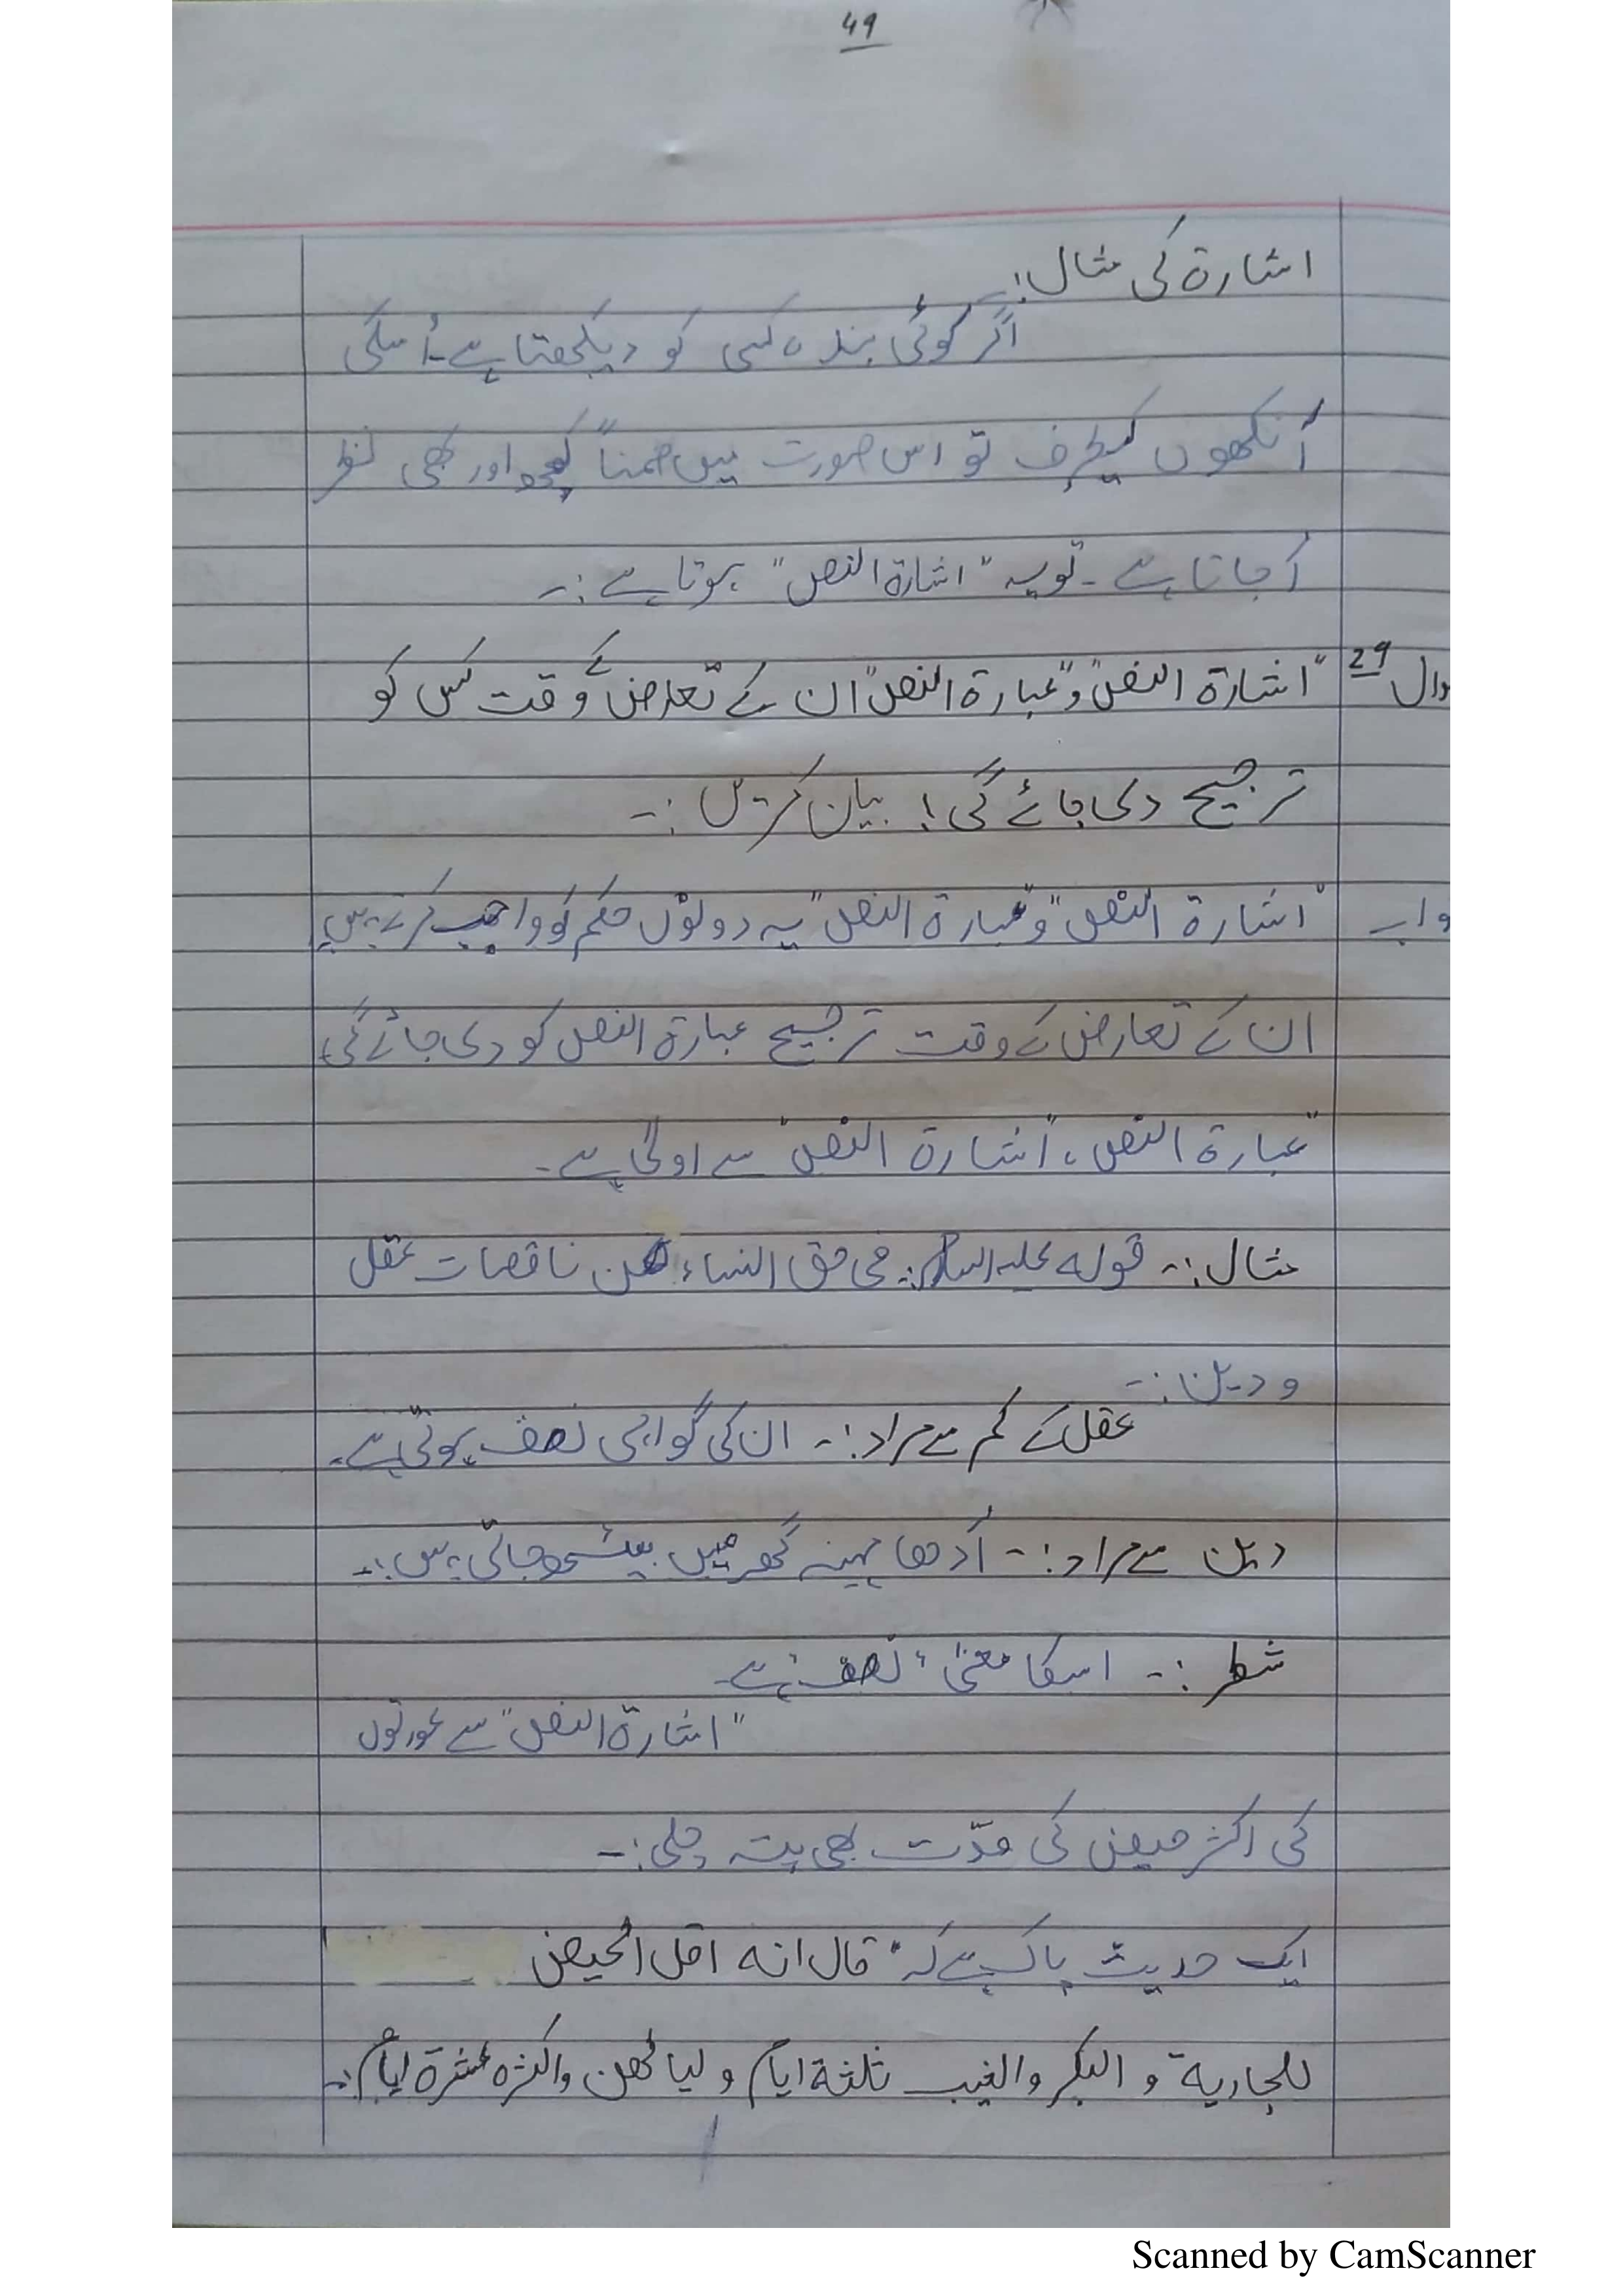 49
اشارۃ کی مثال:۔
اگر کوئی بندہ کسی کو دیکھتا ہے۔ اُسکی
آنکھوں کیطرف تو اس صورت میں ضمناً کچھ اور بھی نظر
آجاتا ہے۔ تو یہ "اشارۃ النص" ہوتا ہے:۔
وال 29 "اشارۃ النص" و "عبارۃ النص" ان کے تعارض کے وقت کس کو
ترجیح دی جائے گی! بیان کریں:۔
واب "اشارۃ النص" و "عبارۃ النص" یہ دونوں حکم کو واجب کرتے ہیں
ان کے تعارض کے وقت ترجیح عبارۃ النص کو دی جائے گی
"عبارۃ النص، "اشارۃ النص" سے اولیٰ ہے۔
مثال:۔ قولہ علیہ السلام: فی حق النساء ھن ناقصات عقل
و دین:۔
عقل کے کم سے مراد:۔ ان کی گواہی نصف ہوتی ہے۔
دین سے مراد:۔ آدھا مہینہ گھر میں بیٹھ جاتی ہیں:۔
شطر:۔ اسکا معنیٰ 'نصف' ہے۔
"اشارۃ النص" سے عورتوں
کی اکثر حیض کی مدّت بھی پتہ چلی:۔
ایک حدیث پاک ہے کہ "قال انہ اقل الحیض
للجاریۃ و البکر والثیب ثلثۃ ایام و لیالھن واکثرہ عشرۃ ایام:۔
Scanned by CamScanner